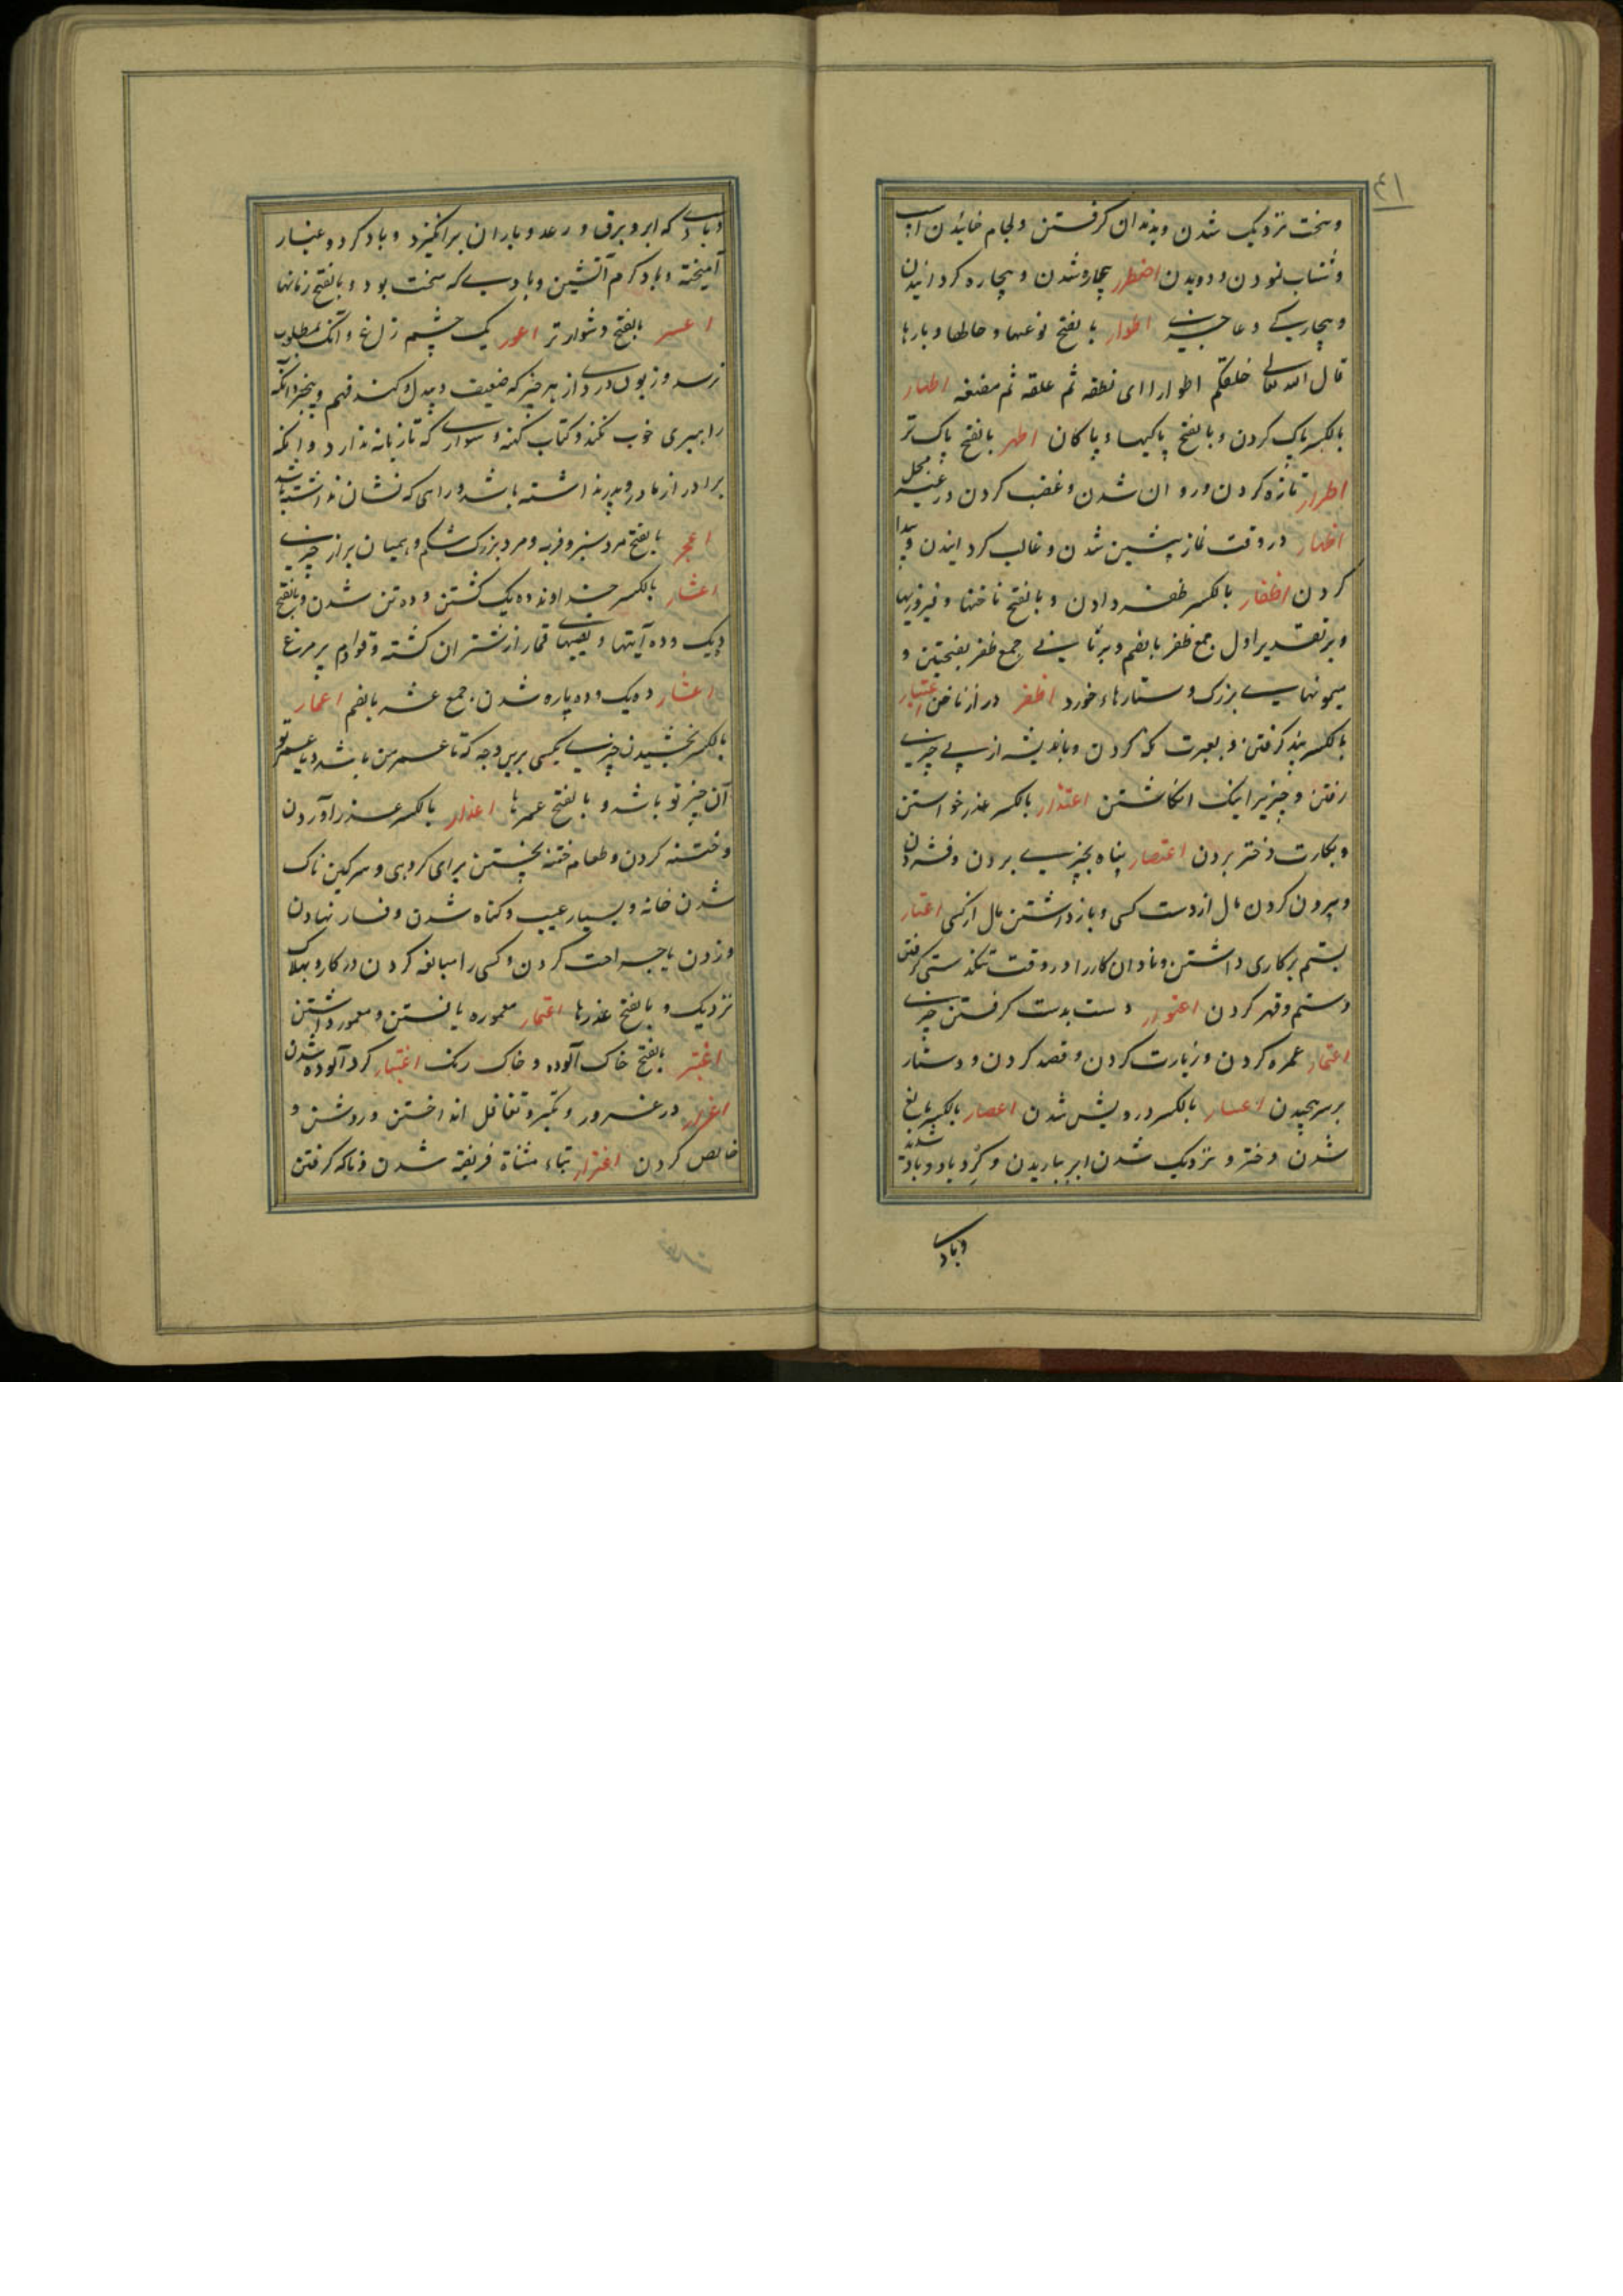 ٤١
وسخت نزدیک شدن وبدندان گرفتن ولجام خائیدن اسب
وشتاب نمودن ودویدن اضطرار بیچاره شدن و بیچاره گردانیدن
و بیچارگی و حاجتمندی اطوار بالفتح نوعها و حالها و بارها
قال الله تعالی خلقکم اطوارا ای نطفه ثم علقه ثم مضغه اطهار
بالکسر پاک کردن و بالفتح پاکیها و پاکان اطهر بالفتح پاک تر
اطرار تازه کردن و روان شدن و غضب کردن در غیر محل
اظهار در وقت نماز پیشین شدن و غالب گردانیدن و پیدا
کردن اظفار بالکسر ظفر دادن و بالفتح ناخنها و فیروزیها
و بر تقدیر اول جمع ظفر بالضم و بر ثانی جمع ظفر بفتحتین و
میمونهای بزرگ و ستارهاء خورد اظفر دراز ناخن اعتبار
بالکسر پند گرفتن و بعبرت نگه کردن و باندیشه از پی چیزی
رفتن و چیزیرا نیک انگاشتن اعتذار بالکسر عذر خواستن
و بکارت دختر بردن اعتصار پناه بچیزی بردن و فشردن
و بیرون کردن مال از دست کسی و باز داشتن مال از کسی اعتسار
بستم بر کاری داشتن و نادان کار را در وقت تنگدستی گرفتن
و ستم و قهر کردن اعتور دست بدست گرفتن چیزی
اعتمار عمره کردن و زیارت کردن و قصد کردن و دستار
بر سر پیچیدن اعسار بالکسر درویش شدن اعصار بالکسر بالغ
شدن دختر و نزدیک شدن ابر بباریدن و گرد باد و باد تند
وبادی
وبادی که ابر و برق و رعد و باران بر انگیزد و باد گرد و غبار
آمیخته و باد گرم آتشین و بادی که سخت بود و بالفتح زمانها
اعسر بالفتح دشوارتر اعور یک چشم و زاغ و آنکه بمطلوب
نرسد و زبون و ردی از هر چیز که ضعیف و بیدل و کند فهم و بیخبر و آنکه
راهبری خوب نکند و کتاب کهنه و سواری که تازیانه ندارد و آنکه
برادر از مادر و پدر نداشته باشد و راهی که نشان نداشته باشد
اعجر بالفتح مرد ستبر و فربه و مرد بزرگ شکم و همیان پر از چیزی
اعشار بالکسر خداوند ده یک گشتن و ده تن شدن و بالفتح
دیگ و ده آیتها و نصیبهای قمار از شتران کشته و قوادم پر مرغ
اعشار ده یک و ده پاره شدن، جمع عشر بالضم اعمار
بالکسر بخشیدن چیزی بکسی برین وجه که تا عمر من باشد و یا عمر تو
آن چیز تو باشد و بالفتح عمرها اعذار بالکسر عذر آوردن
و ختنه کردن و طعام ختنه پختن برای گروهی و سرگین ناک
شدن خانه و بسیار عیب و گناه شدن و فسار نهادن
و زدن با جراحت کردن و کسی را مبالغه کردن در کار و بهلاک
نزدیک و بالفتح عذرها اعتمار معموره یافتن و معمور داشتن
اغبر بالفتح خاک آلوده و خاک رنگ اغتبار گرد آلوده شدن
اغرار در غرور و تکبر و تغافل انداختن و روشن و
خالص کردن اغترار بتاء مثناة فریفته شدن و ناگه گرفتن